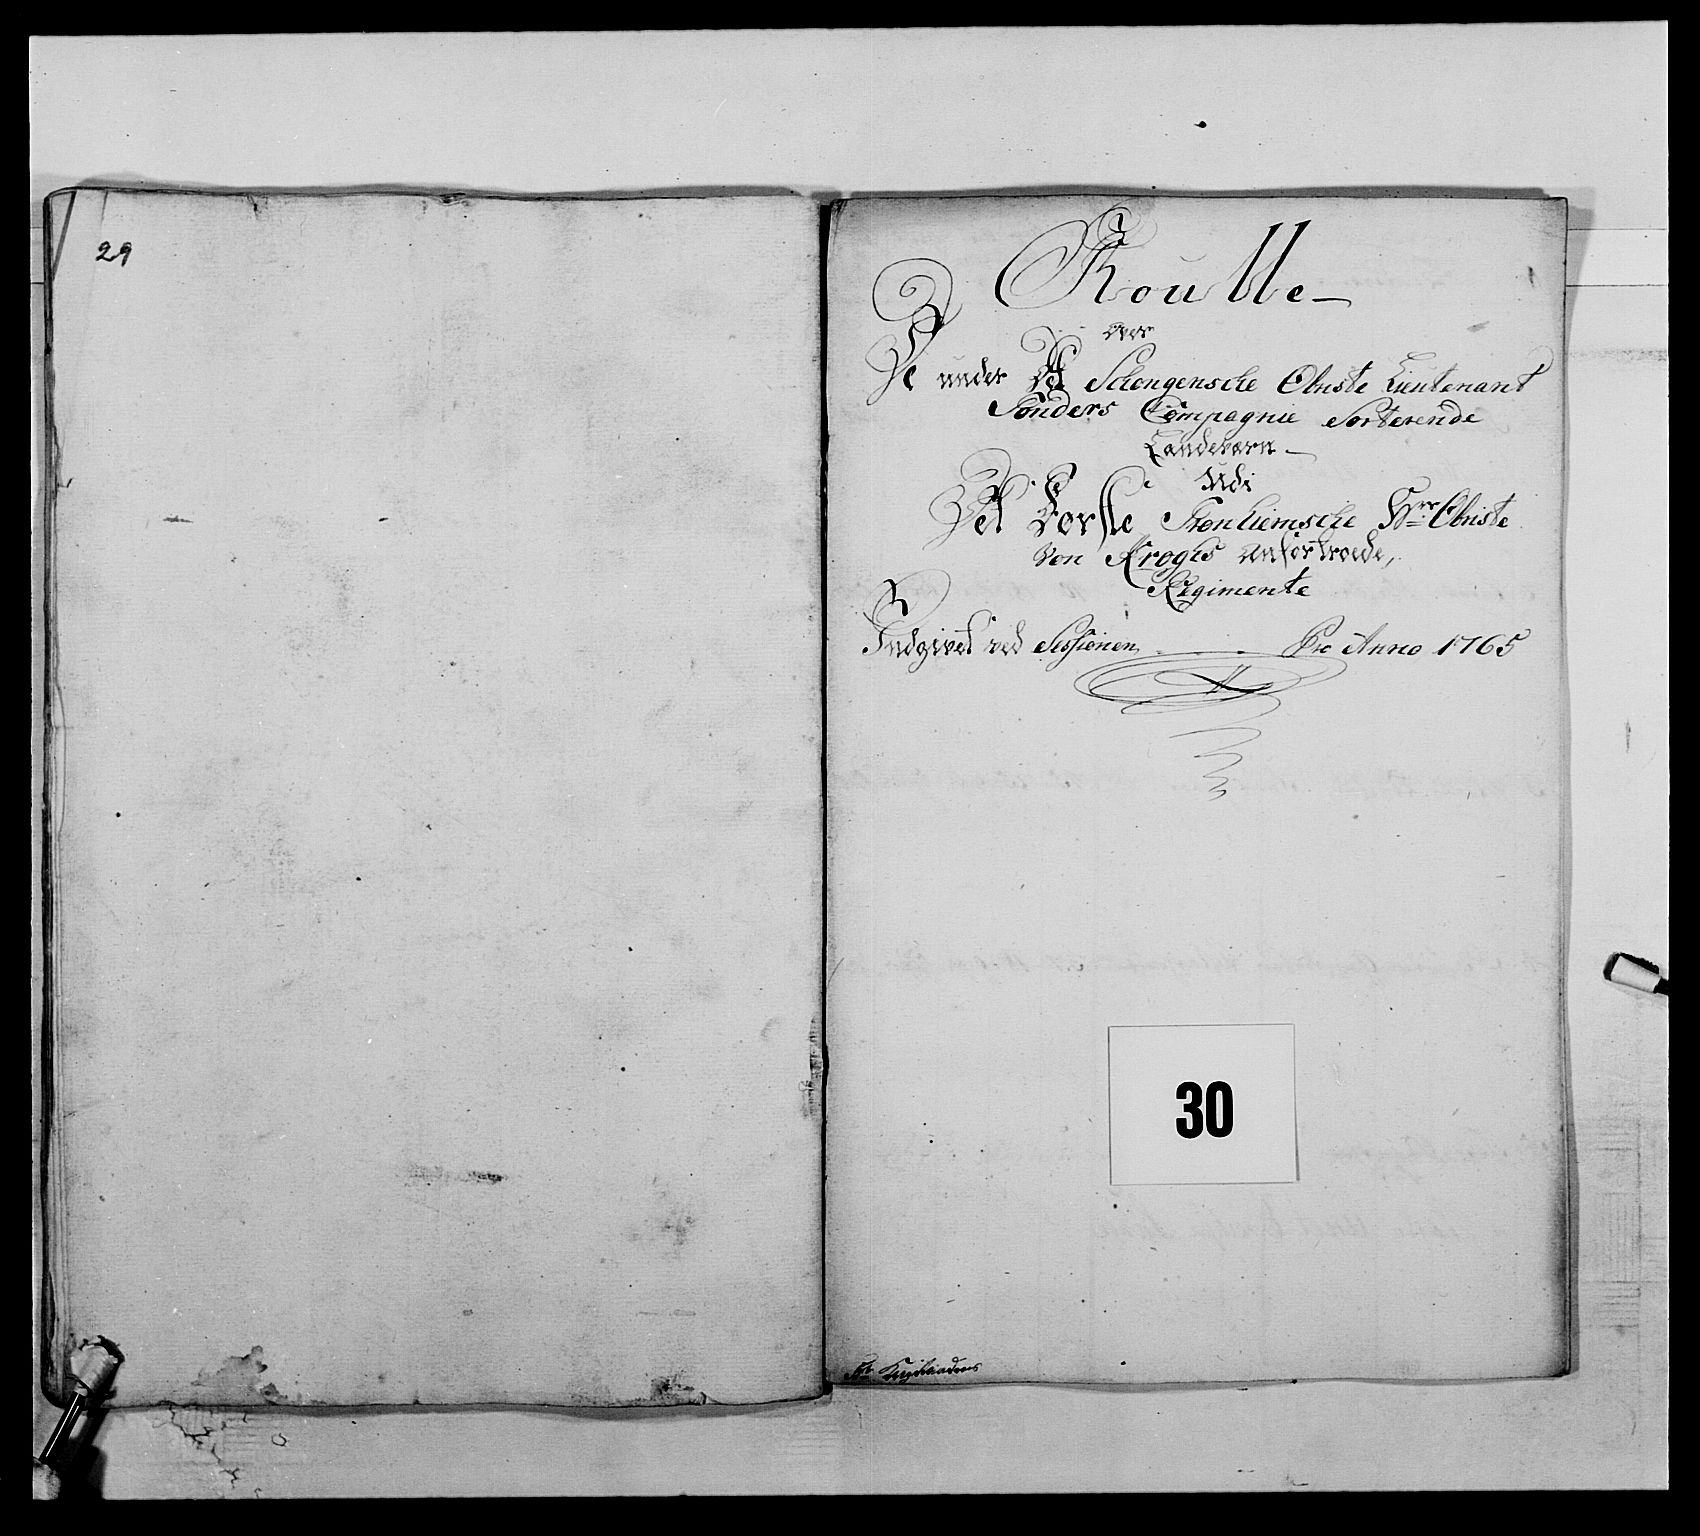 29
Roulle
over
De under Det Schongensche Obriste Lieutenant
Sonders Compagnie Sorterende
Landeværn
Udi
Det Første Tronhiemsche Hrr Obriste
von Kroghs anfortroede,
Regimente
Indgivet ved Sessionen Pro Anno 1765
30